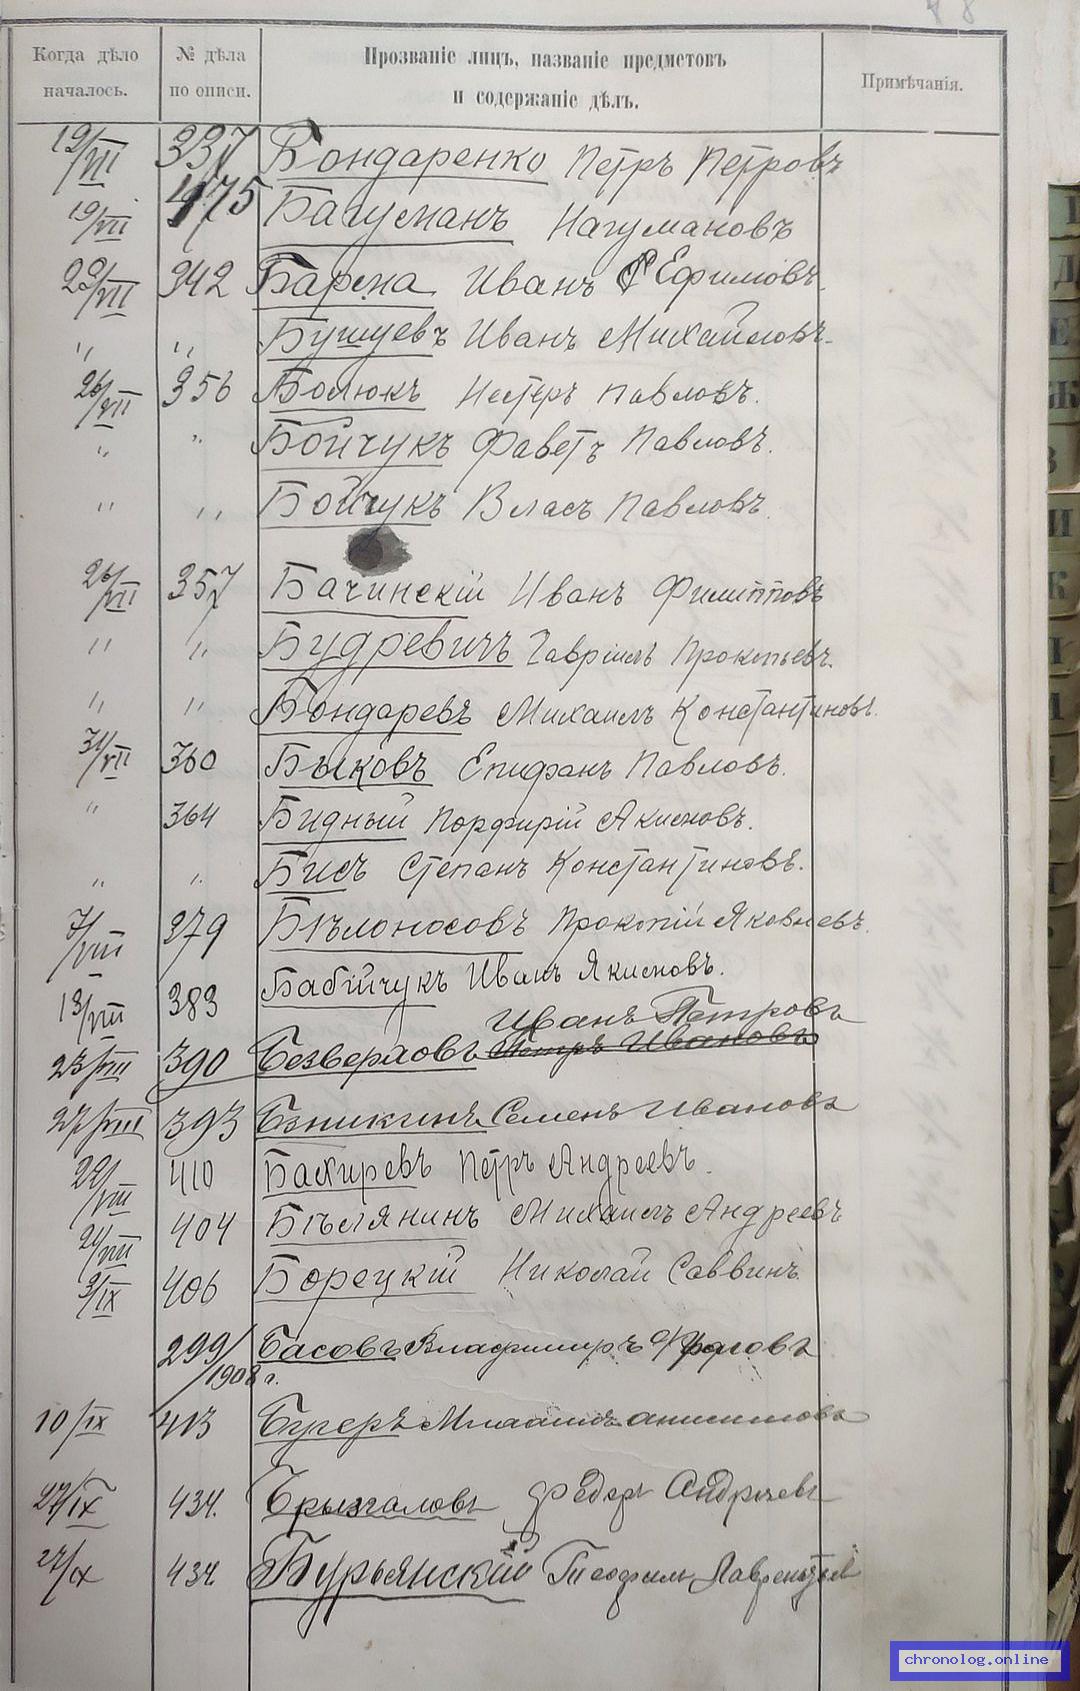 Когда дѣло началось. № дѣла по описи. Прозваніе лицъ, названіе предметовъ и содержаніе дѣлъ. Примѣчанія.
19/VII 337 Бондаренко Петръ Петровъ
19/VII 475 Багуманъ Нагумановъ
23/VII 342 Иванъ Ефимовъ
" " Бушуевъ Иванъ Михайловъ
26/VII 356 Болюкъ Нестеръ Павловъ.
" " Бойчукъ Фаветъ Павловъ.
" " Бойчукъ Власъ Павловъ.
26/VII 357 Бачинскій Иванъ Филипповъ
" " Будревичъ Гавріилъ Прокопьевъ.
" " Бондаревъ Михаилъ Константиновъ.
31/VII 360 Быковъ Епифанъ Павловъ.
" 364 Бидный Порфирій Акимовъ.
" " Бисъ Степанъ Константиновъ.
7/VIII 379 Бѣлоносовъ Прокопій Яковлевъ.
13/VIII 383 Бабійчукъ Иванъ Якимовъ.
Иванъ Петровъ
23/VIII 390 Безверховъ Петръ Ивановъ
27/VIII 393 Бзникинъ Семенъ Ивановъ
22/VIII 410 Бахиревъ Петръ Андреевъ.
21/VIII 404 Бѣлянинъ Михаилъ Андреевъ
3/IX 406 Борецкій Николай Саввинъ
299/1908 г. Басовъ Владимиръ
10/IX 413 Бугеръ
27/IX 434. Брызгаловъ Федоръ Андреевъ
27/IX 434. Бурьянскій Теофилъ
chronolog.online